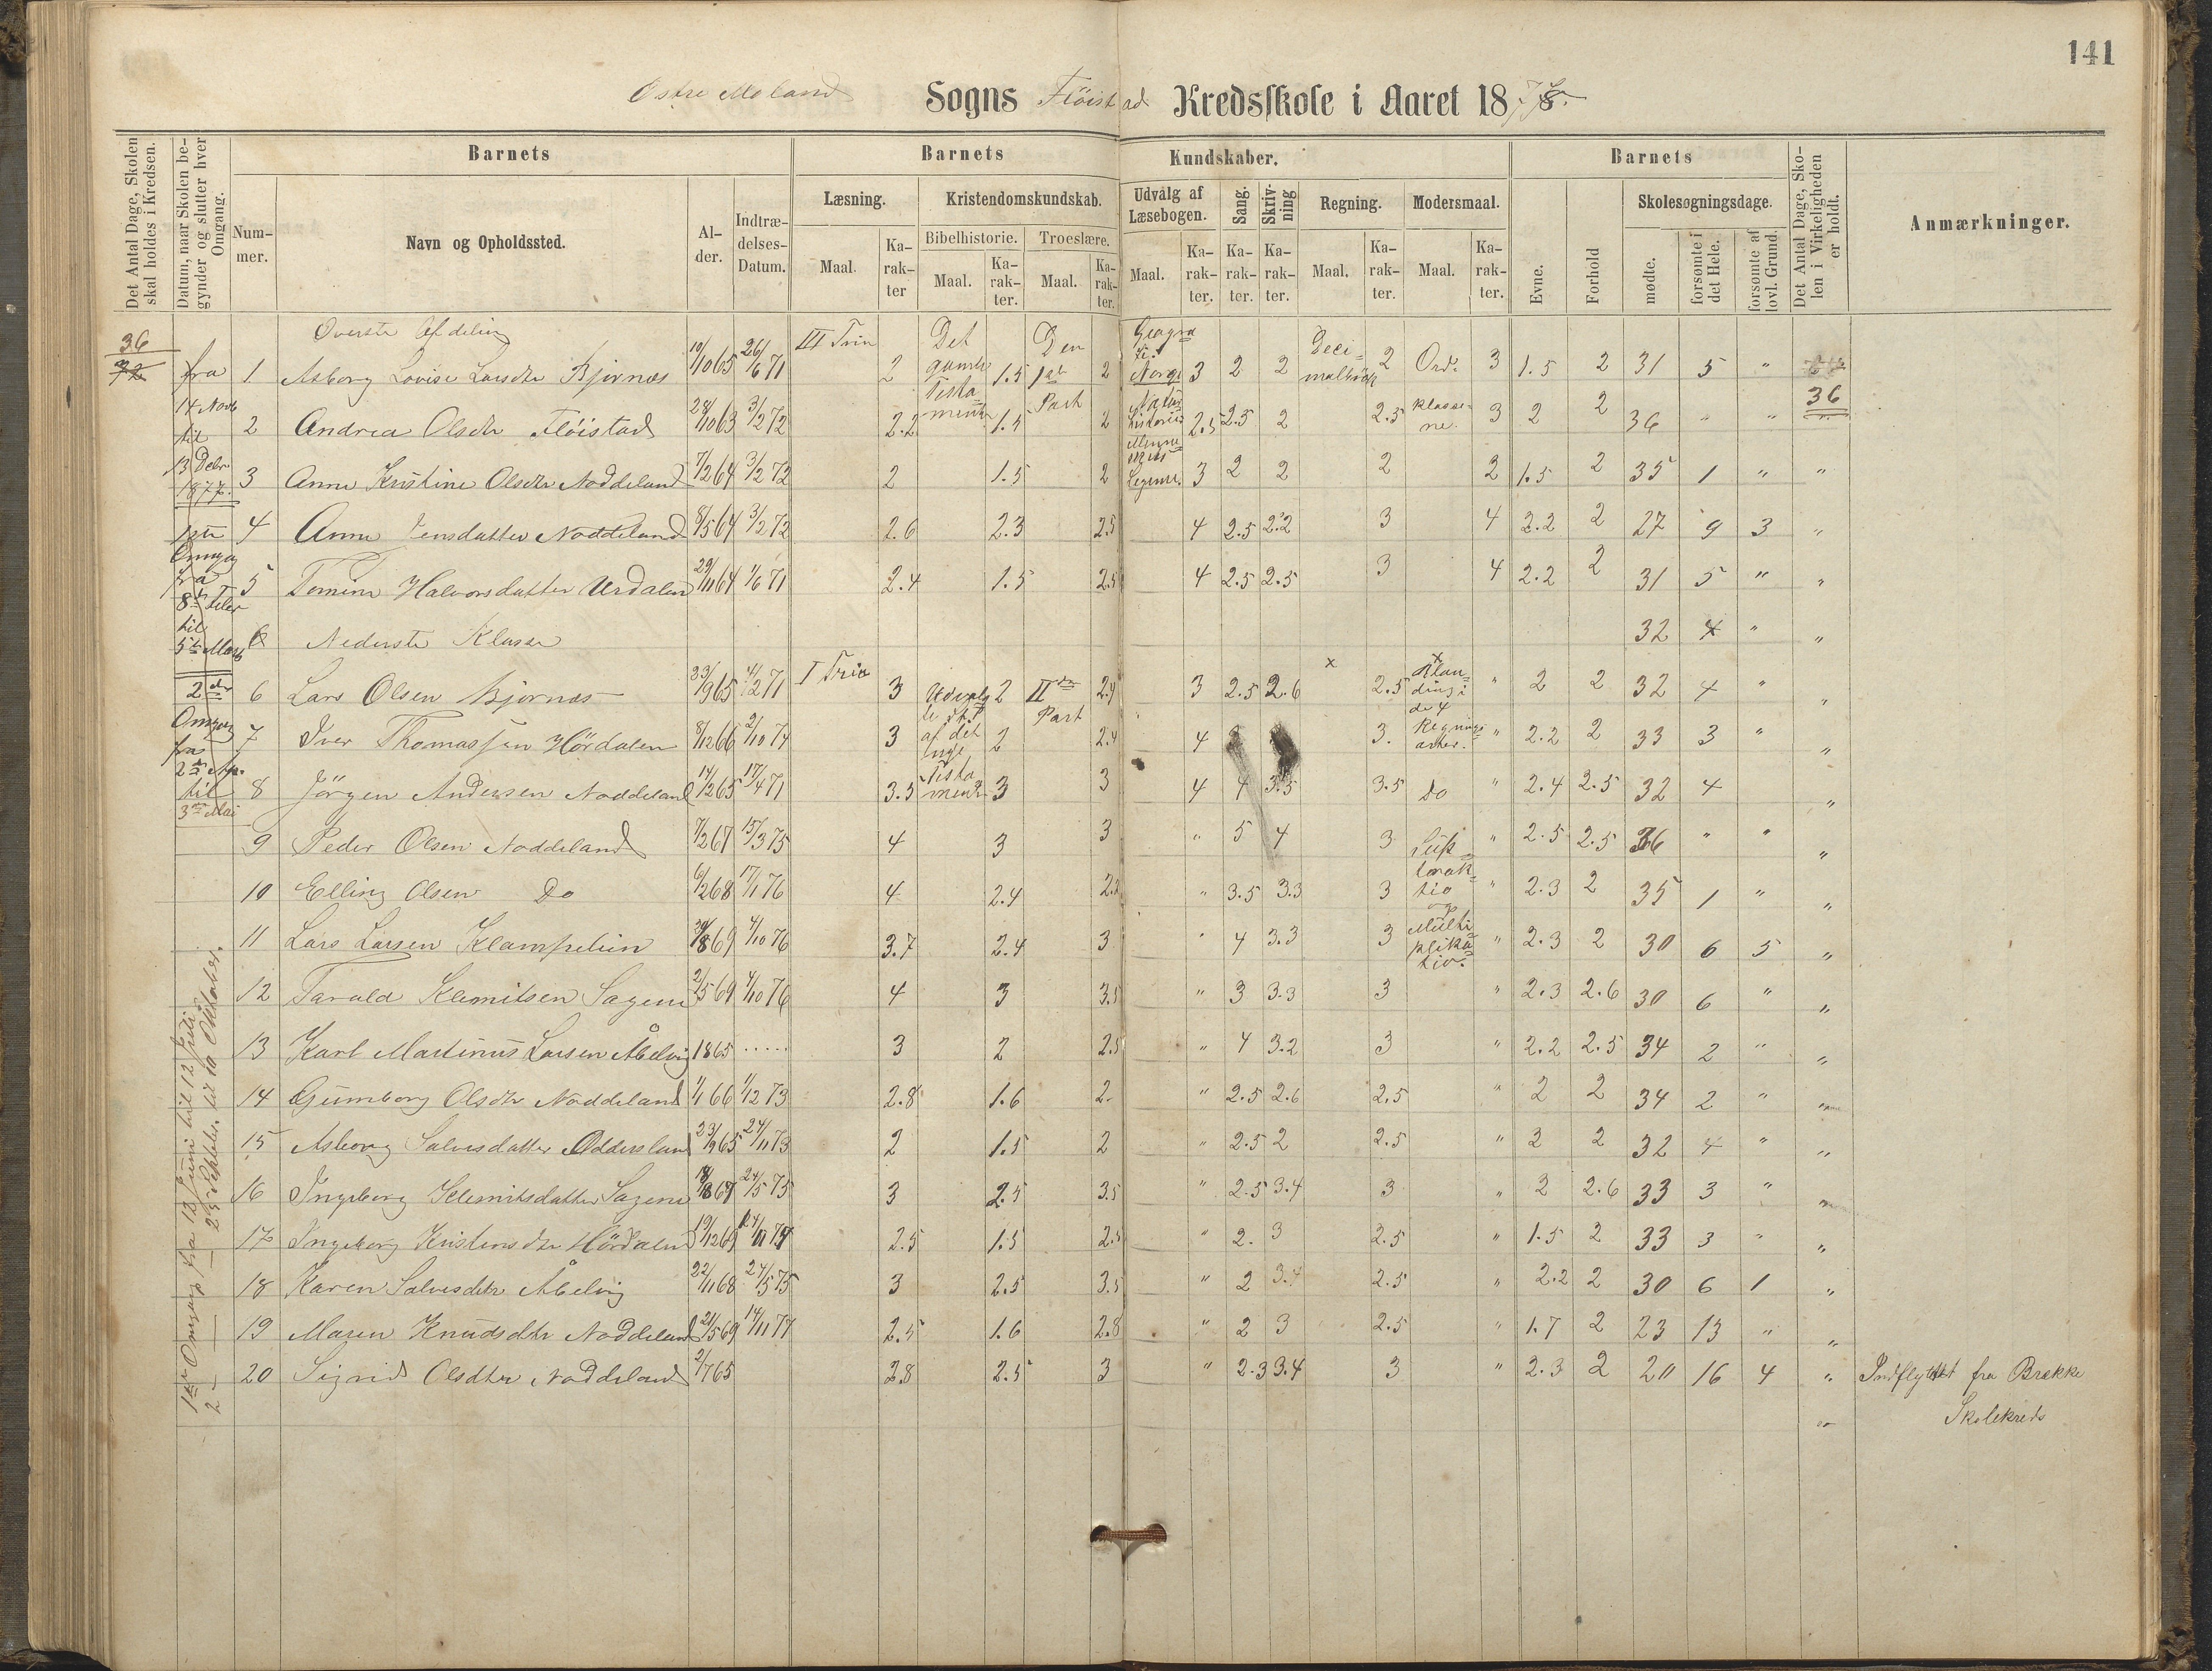 141
Østre Moland Sogns Flöistad Kredsskole i Aaret 1878
Det Antal Dage, Skolen skal holdes i Kredsen.
Datum, naar Skolen begynder og slutter hver Omgang.
Barnets
Nummer.
Navn og Opholdssted.
Alder.
Indtrædelses-Datum.
Barnets Kundskaber.
Læsning.
Maal.
Karakter
Kristendomskundskab.
Bibelhistorie.
Maal.
Karakter.
Troeslære.
Maal.
Karakter.
Udvalg af Læsebogen.
Maal.
Karakter.
Sang.
Karakter.
Skrivning
Karakter.
Regning.
Maal.
Karakter.
Modersmaal.
Maal.
Karakter.
Barnets
Evne.
Forhold
Skolesøgningsdage.
mødte.
forsømte i det Hele.
forsømte af lovl. Grund.
Det Antal Dage, Skolen i Virkeligheden er holdt.
Anmærkninger.
36
72
fra
14 Novb
til
13 Debr
1877.
1ste
Omgag
fra
8de Febr
til
5te Marts
2den
Omgang
fra
2den Apr.
til
3die Mai
1ste Omgang fra 13 Juni til 12 Juli
2 — — 2 Septbr. til 10 Oktober.
Överste Afdeling
1 Asborg Lovise Larsdtr Bjornæs 19/10 65 26/6 71 III Trin 2 Det gamle Testamente 1.5 Den 1ste Part 2 Geografi: Norge 3 2 2 Decimalbrök 2 Ord- 3 1.5 2 31 5 " 36
2 Andrea Olsdtr Flöistad 28/10 63 3/2 72 2.2 1.5 2 Naturhistorie: 2.5 2.5 2 2.5 klasserne. 3 2 2 36 " " "
3 Anne Kristine Olsdtr Noddeland 7/2 64 3/2 72 2 1.5 2 Menneskets Legeme. 3 2 2 2 2 1.5 2 35 1 " "
4 Anne Jensdatter Noddeland 8/5 64 3/2 72 2.6 2.3 2.5 4 2.5 2.2 3 4 2.2 2 27 9 3 "
5 Tomine Halvorsdatter Urdalen 29/11 64 1/6 71 2.4 1.5 2.5 4 2.5 2.5 3 4 2.2 2 31 5 " "
6 Nederste Klasse 32 4 " "
6 Lars Olsen Bjornæs 23/9 65 4/12 71 I Trin 3 Udvalgte St. af det nye Testamente 2 IIden Part 2.4 3 2.5 2.6 x 2.5 x Blanding i de 4 Regningsarter. " 2 2 32 4 " "
7 Iver Thomassen Hördalen 8/12 66 2/10 74 3 2 2.4 4 3. " 2.2 2 33 3 " "
8 Jörgen Andersen Noddeland 14/12 65 17/4 71 3.5 3 3 4 4 3.5 3.5 Do " 2.4 2.5 32 4 "
9 Peder Olsen Noddeland 7/2 67 15/3 75 4 3 3 " 5 4 3 Subtraktio og Multiplikatio. " 2.5 2.5 36 " " "
10 Elling Olsen Do 6/2 68 17/1 76 4 2.4 2.2 " 3.5 3.3 3 " 2.3 2 35 1 " "
11 Lars Larsen Klampeliin 8 69 4/10 76 3.7 2.4 3 " 4 3.3 3 " 2.3 2 30 6 5 "
12 Tarald Klemitsen Sagene 2/5 69 4/10 76 4 3 3.5 " 3 3.3 3 " 2.3 2.6 30 6 " "
13 Karl Martinus Larsen Åbelvig 1865 ..... 3 2 2.5 " 4 3.2 3 " 2.2 2.5 34 2 " "
14 Gumborg Olsdtr Noddeland 1/1 66 1/12 73 2.8 1.6 2. " 2.5 2.6 2.5 " 2 2 34 2 " "
15 Asborg Salvesdatter Oddersland 23/9 65 24/11 73 2 1.5 2 " 2.5 2 2.5 " 2 2 32 4 " "
16 Ingeborg Klemitsdatter Sagene 18/8 67 24/5 75 3 2.5 3.5 " 2.5 3.4 3 " 2 2.6 33 3 " "
17 Ingeborg Kristensdtr Hördalen 19/12 69 2.5 1.5 2.5 " 2. 3 2.5 " 1.5 2 33 3 " "
18 Karen Salvesdtr Åbelvig 22/11 68 24/5 75 3 2.5 3.5 " 2 3.4 2.5 " 2.2 2 30 6 1 "
19 Maren Knudsdtr Noddeland 21/5 69 14/11 77 2.5 1.6 2.8 " 2 3 2.5 " 1.7 2 23 13 " "
20 Sigrid Olsdtr Noddeland 2/7 65 2.8 2.5 3 " 2.3 3.4 3 " 2.3 2 20 16 4 " Indflyttet fra Brekke
Skolekreds